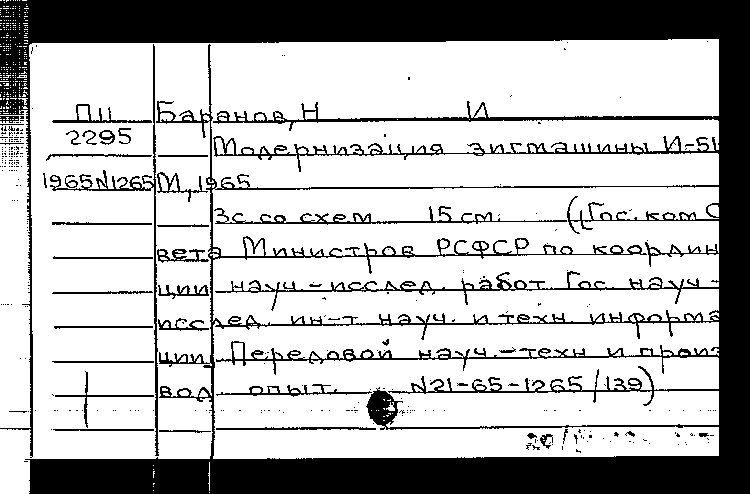 П11 Баранов, Н И
2295
Модернизация зигмашины И-51
1965N1265 М, 1965
3с. со схем 15 см. ((Гос. ком С
вета Министров РСФСР по координ
ции науч.-исслед. работ Гос. науч-
исслед. ин-т науч. и техн информа
ции. Передовой науч.-техн и произ
вод опыт. N21-65-1265/139)